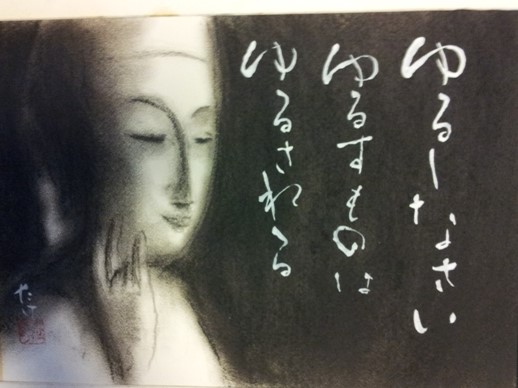 ゆるしなさい
ゆるすものは
ゆるされる
たけし